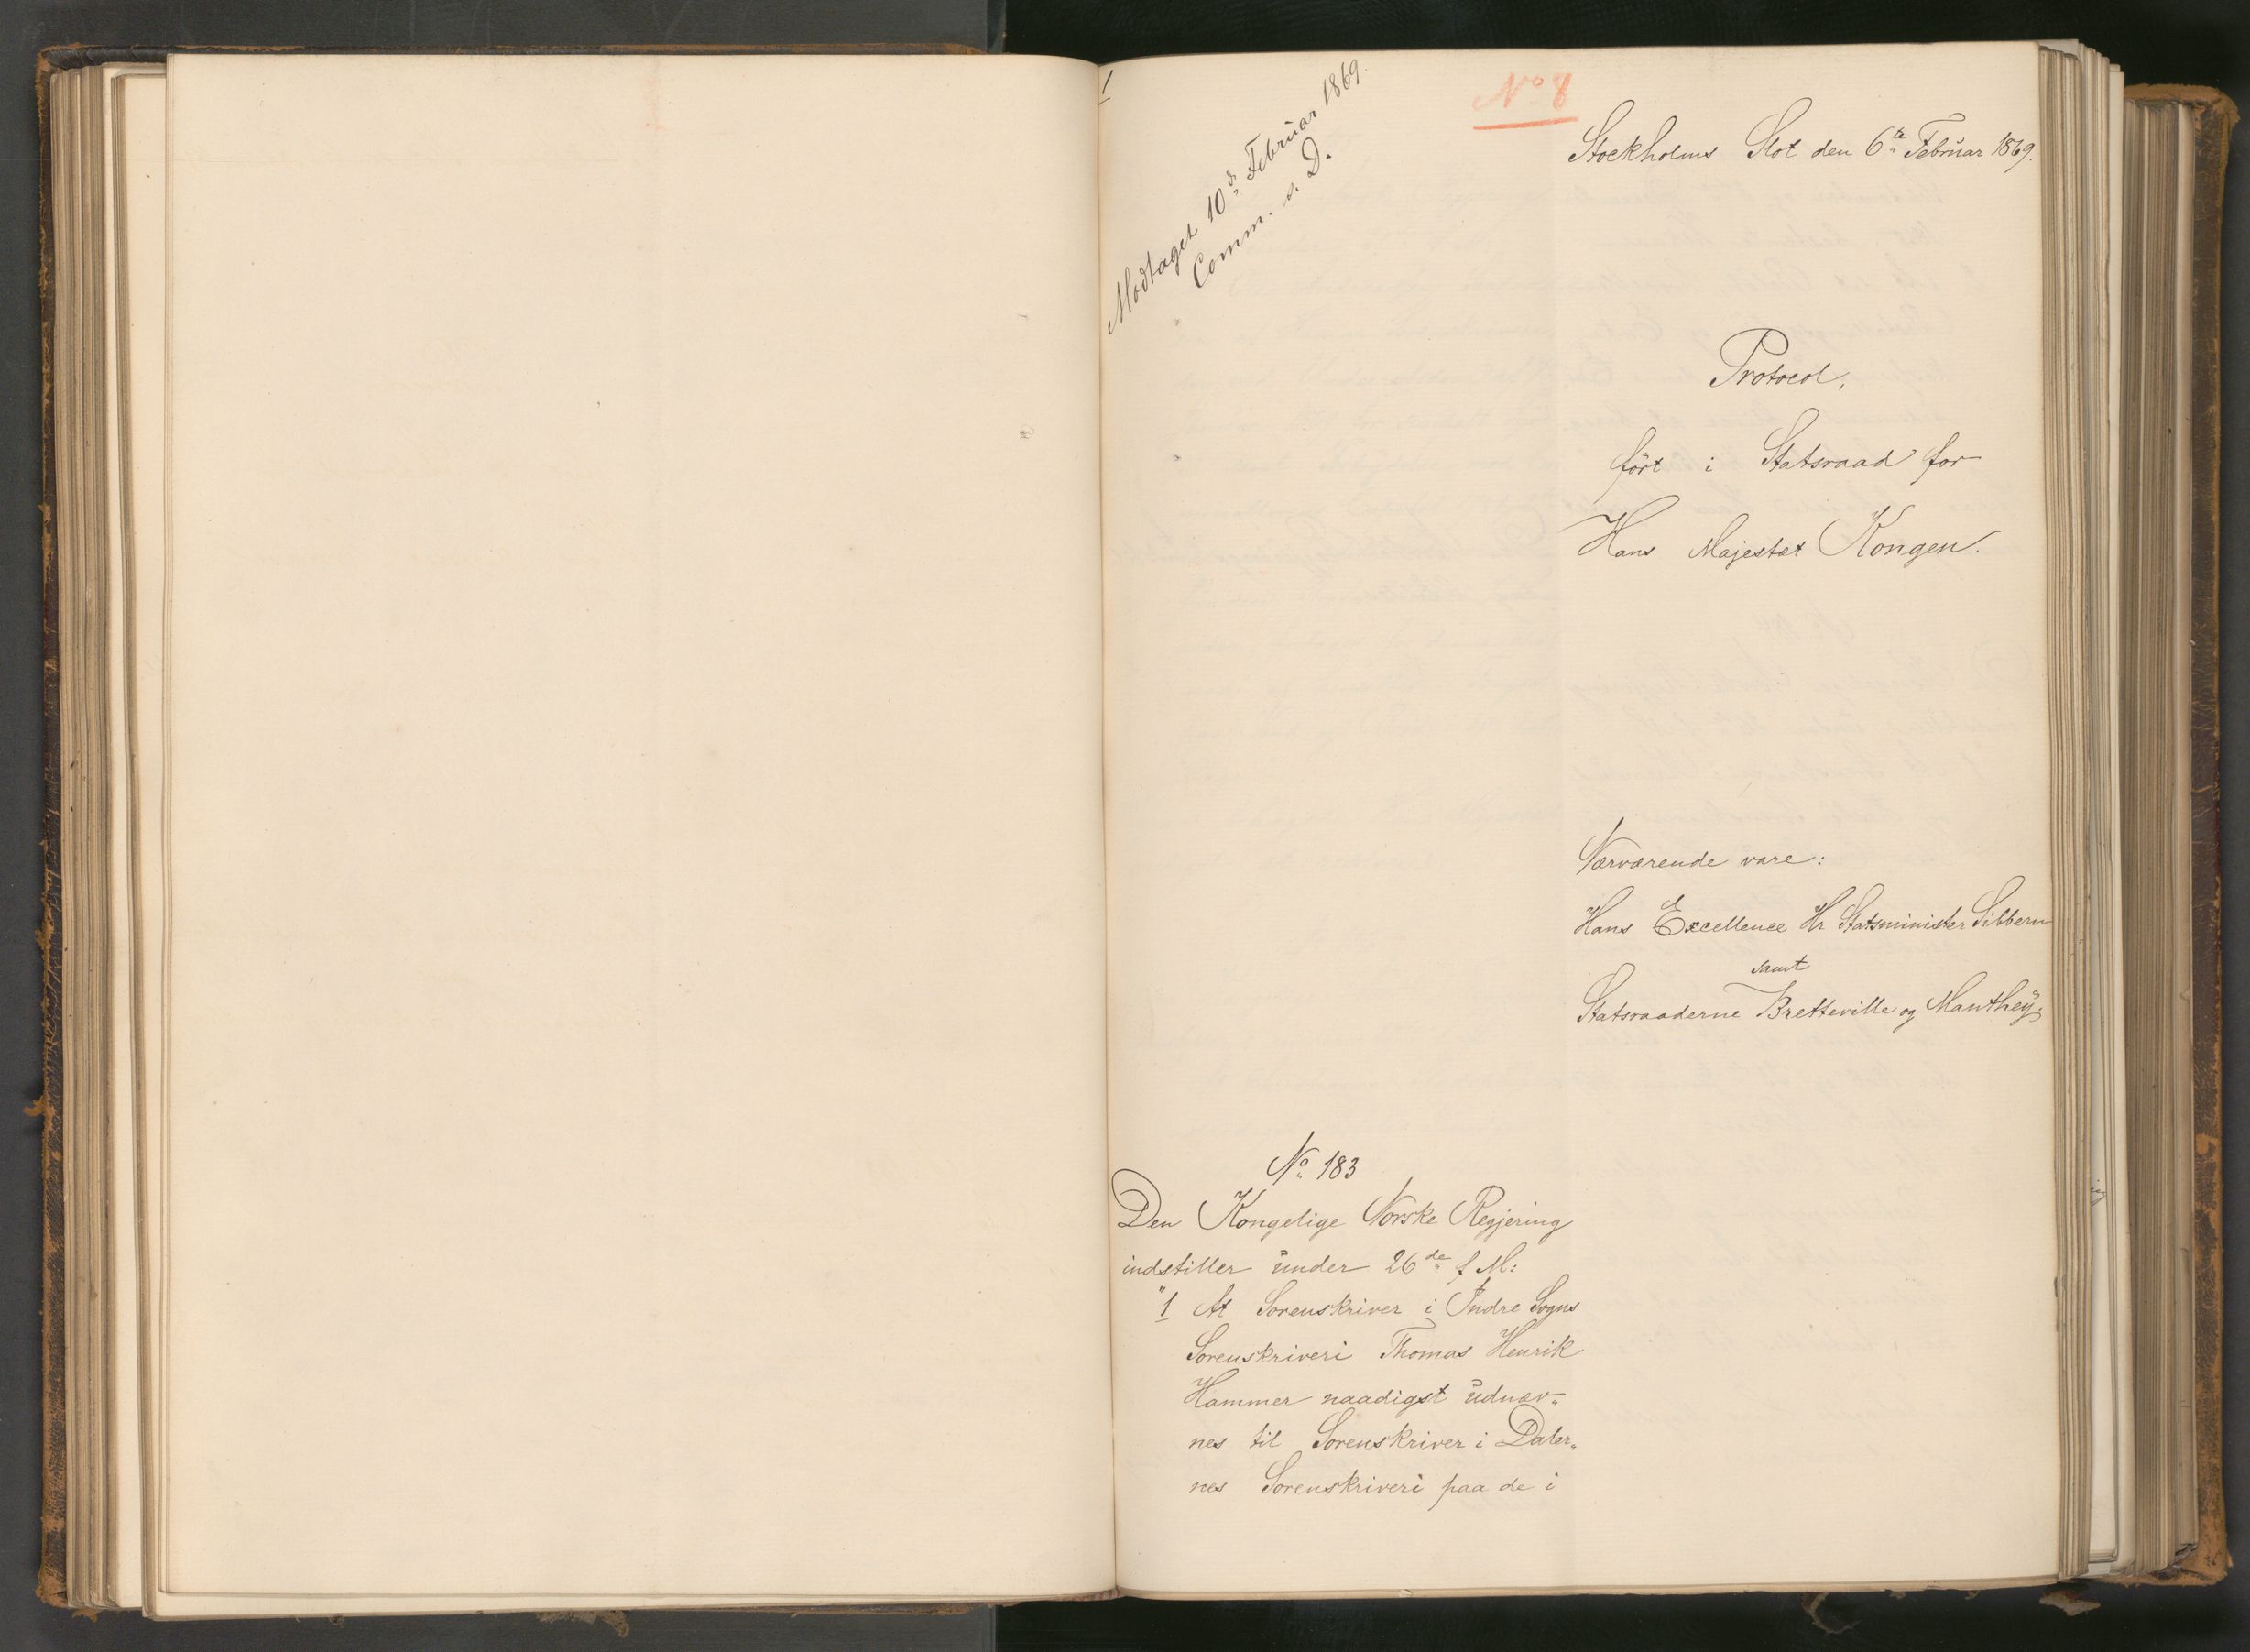 1
Modtaget 10d Februar 1869.
Comm. s. D.
No 8
Stockholms Slot den 6te Februar 1869.
Protocol,
ført i Statsraad for
Hans Majestæt Kongen.
Nærværende vare:
Hans Excellence Hr Statsminister Sibbern
samt
Statsraaderne Bretteville og Manthey;
No 183
Den Kongelige Norske Regjering
indstiller under 26de f M:
"1 At Sorenskriver i Indre Sogns
Sorenskriveri Thomas Henrik
Hammer naadigst udnæv-
nes til Sorenskriver i Daler-
nes Sorenskriveri paa de i